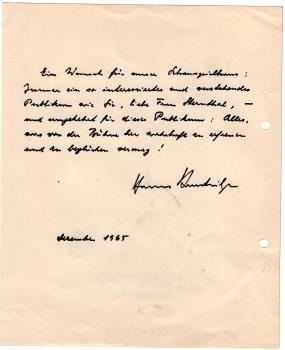 Ein Wunsch für unser Schauspielhaus:
Immer ein so interessiertes und verstehendes
Publikum wie Sie, liebe Frau Sternthal, —
und umgekehrt für dieses Publikum: Alles,
was von der Bühne her wahrhaft zu erfreuen
und zu beglücken vermag!
Hanns
Dezember 1965